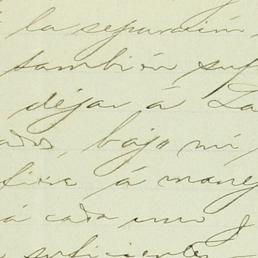 la separación,
también suf
dejar á La
ados, bajo mi
fixe á manej
á cada uno y
suficiente